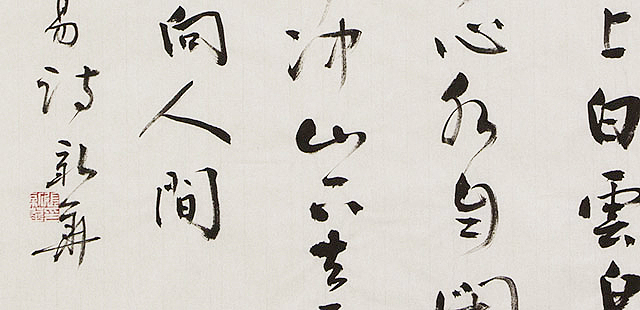 上白雲
心水自閒
沖山下去
向人間
易詩